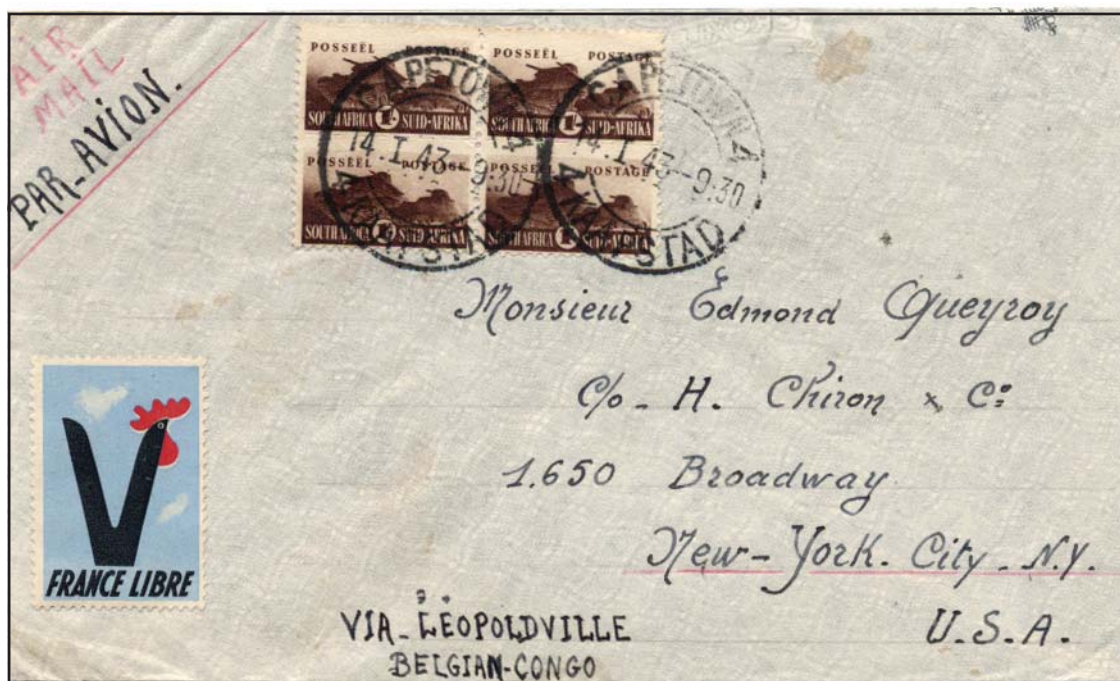 AIR
MAIL
PAR-AVION.
POSSEËL POSTAGE
SOUTH AFRICA 1/- SUID-AFRIKA
POSSEËL POSTAGE
SOUTH AFRICA 1/- SUID-AFRIKA
POSSEËL POSTAGE
SOUTH AFRICA 1/- SUID-AFRIKA
POSSEËL POSTAGE
SOUTH AFRICA 1/- SUID-AFRIKA
CAPETOWN 4
14.I.43-9:30
4 KAAPSTAD
CAPETOWN 4
14.I.43-9:30
4 KAAPSTAD
Monsieur Edmond Queyroy
c/o - H. Chiron & Co:
1.650 Broadway
New-York. City. N.Y.
U.S.A.
V
FRANCE LIBRE
VIA-LÉOPOLDVILLE
BELGIAN-CONGO